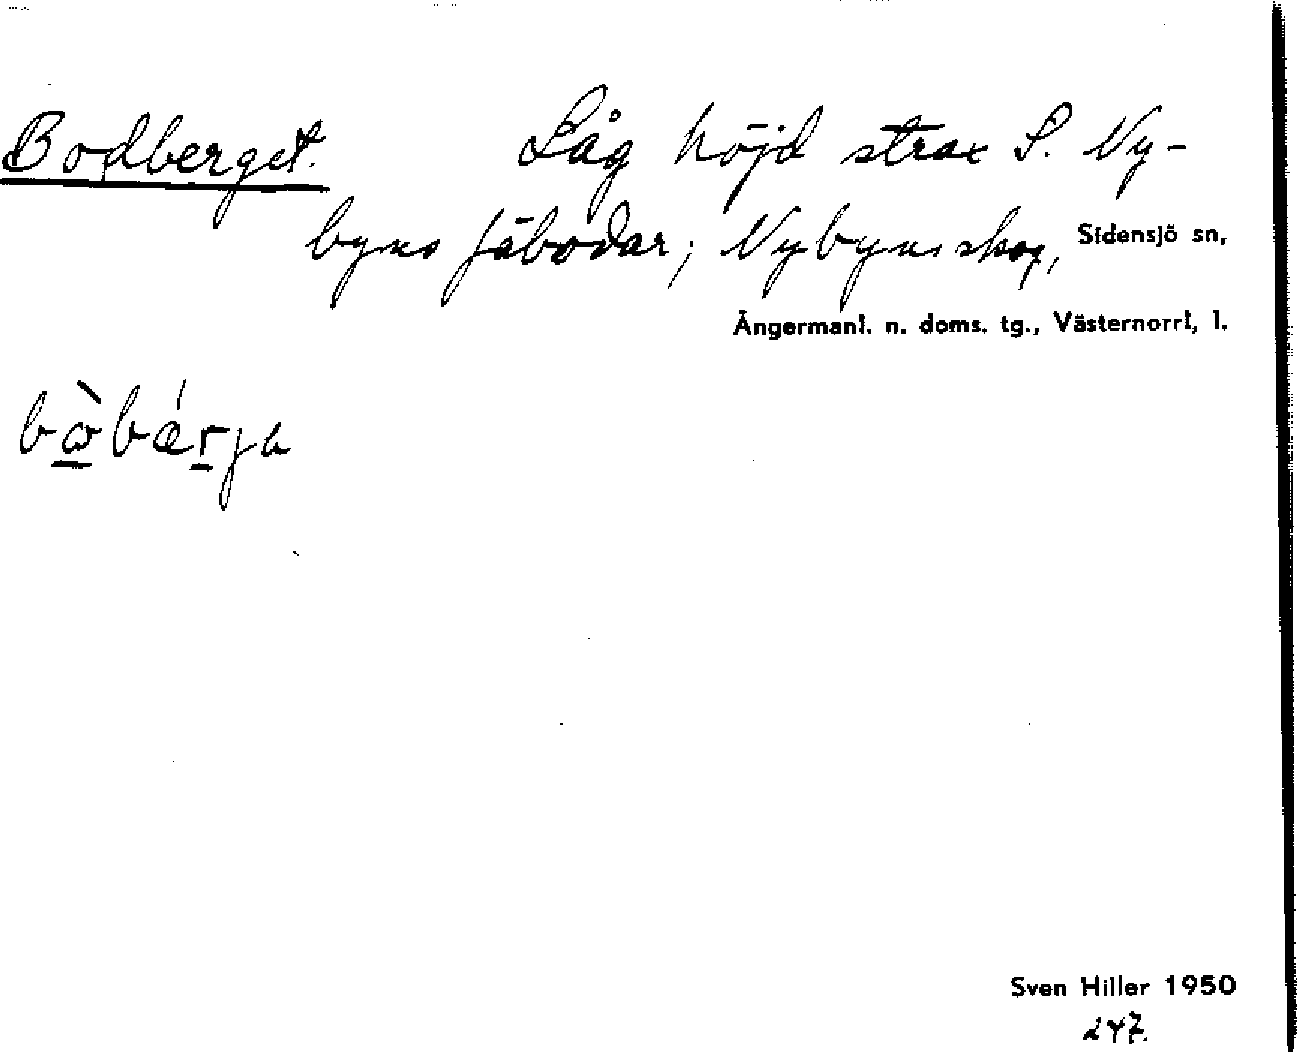 Bodberget. Låg höjd strax S. Ny-
byns fäbodar; Nybyns skog, Sidensjö sn,
Ångermanl. n. doms. tg., Västernorrl, l.
bòbærja
Sven Hiller 1950
247.